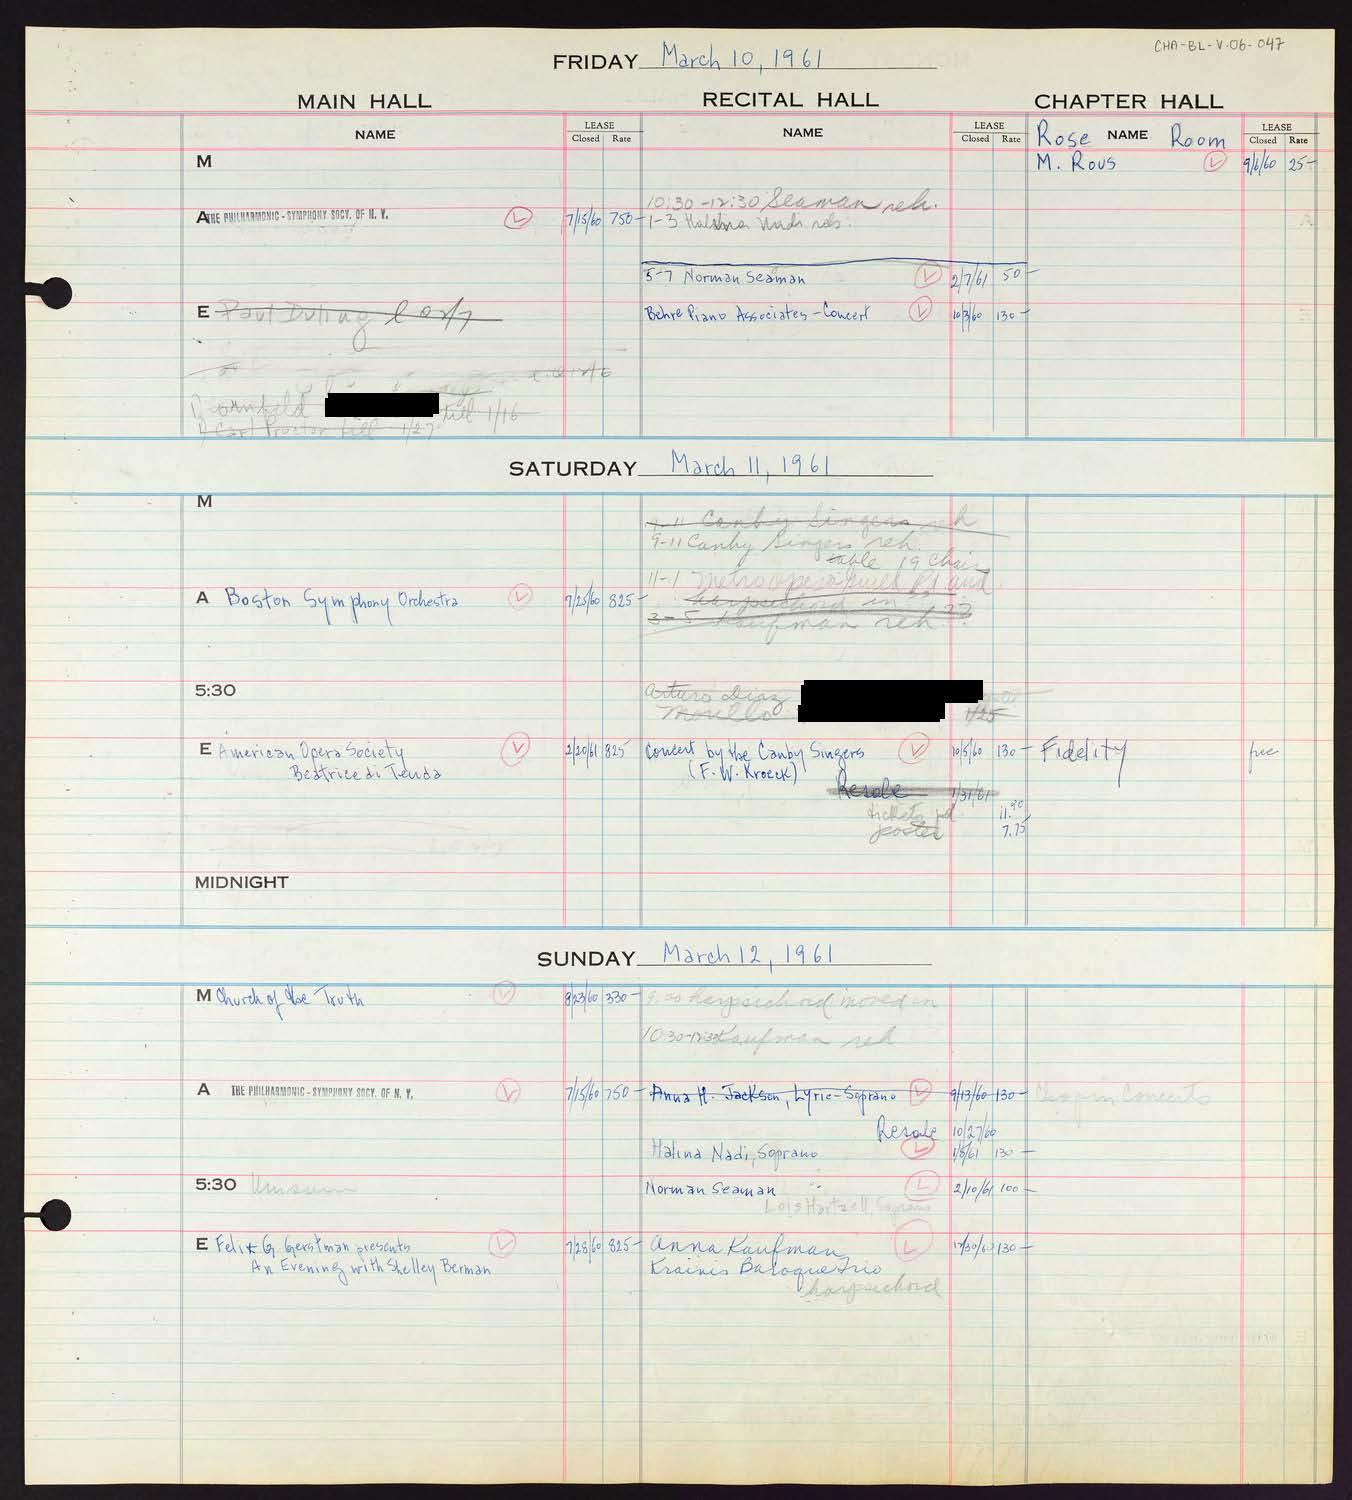 CHA-BL-V-06-047
FRIDAY March 10, 1961
MAIN HALL RECITAL HALL CHAPTER HALL
NAME LEASE Closed Rate NAME LEASE Closed Rate Rose NAME Room LEASE Closed Rate
M M. Rous 9/6/60 25-
10:30-12:30 Seaman reh.
A THE PHILHARMONIC-SYMPHONY SOCY. OF N. Y. 7/15/60 750- 1-3 Halina Nadi reh.
5-7 Norman Seaman 2/7/61 50-
E Behre Piano Associates-Concert 10/3/60 130-
till 1/16
Carl Proctor till 1/27
SATURDAY March 11, 1961
M
Canby Singers reh
9-11 Canby Singers reh.
table 19 Chairs
11-1 Metro opera guild P1 and
A Boston Symphony Orchestra 7/25/60 825- harpsichord in
3-5 Kaufman reh.
5:30 Arturo Diaz
Morello 1/25
E American Opera Society 2/20/61 825 Concert by the Canby Singers 10/5/60 130- Fidelity free
Beatrice di Tenda (F. W. Kroeck)
Resale 1/31/61
tickets pd. 11.90
poster 7.75
MIDNIGHT
SUNDAY March 12, 1961
M Church of the Truth 8/23/60 330- 9:00 harpsichord moved in
10:30-12:30 Kaufman reh
A THE PHILHARMONIC-SYMPHONY SOCY. OF N. Y. 7/15/60 750- Anna H. Jackson, Lyric-Soprano 9/13/60 130- Chopin Concerts
Resale 10/27/60
Halina Nadi, Soprano 1/8/61 130-
5:30 Norman Seaman 2/10/61 100-
Lois Hartzell, Soprano
E Felix G. Gerstman presents 7/28/60 825- Anna Kaufman 130-
An Evening with Shelley Berman Krainis Baroque Trio
harpsichord